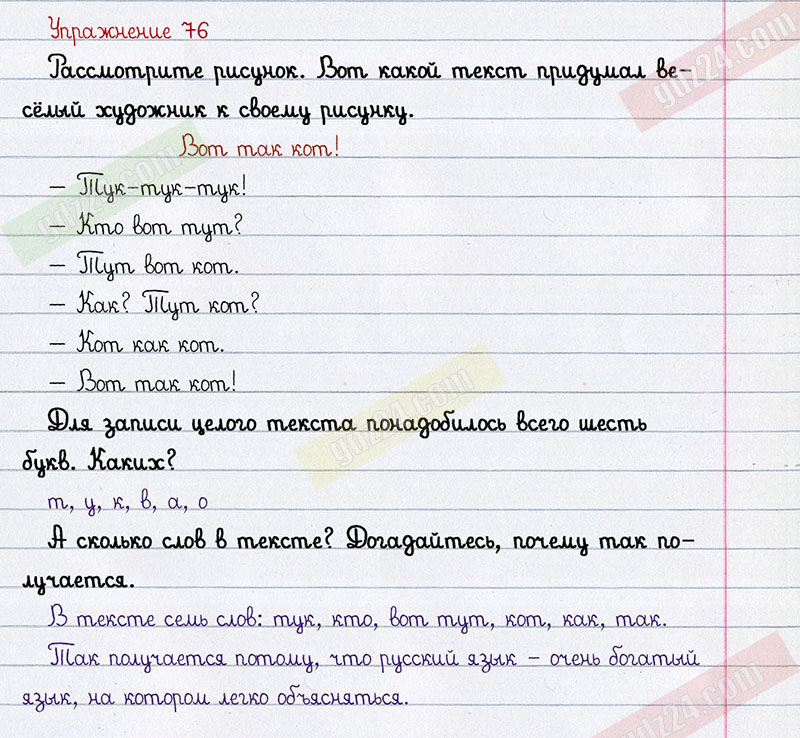 Упражнение 76
Рассмотрите рисунок. Вот какой текст придумал ве-
сёлый художник к своему рисунку.
Вот так кот!
– Тук-тук-тук!
– Кто вот тут?
– Тут вот кот.
– Как? Тут кот?
– Кот как кот.
– Вот так кот!
Для записи целого текста понадобилось всего шесть
букв. Каких?
т, у, к, в, а, о
А сколько слов в тексте? Догадайтесь, почему так по-
лучается.
В тексте семь слов: тук, кто, вот тут, кот, как, так.
Так получается потому, что русский язык – очень богатый
язык, на котором легко объясняться.
gdz24.com
gdz24.com
gdz24.com
gdz24.com